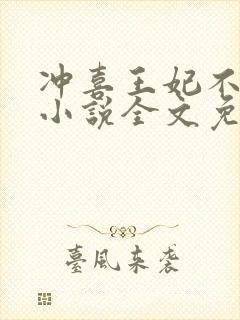 冲喜王妃不
小說全文免
臺風來襲